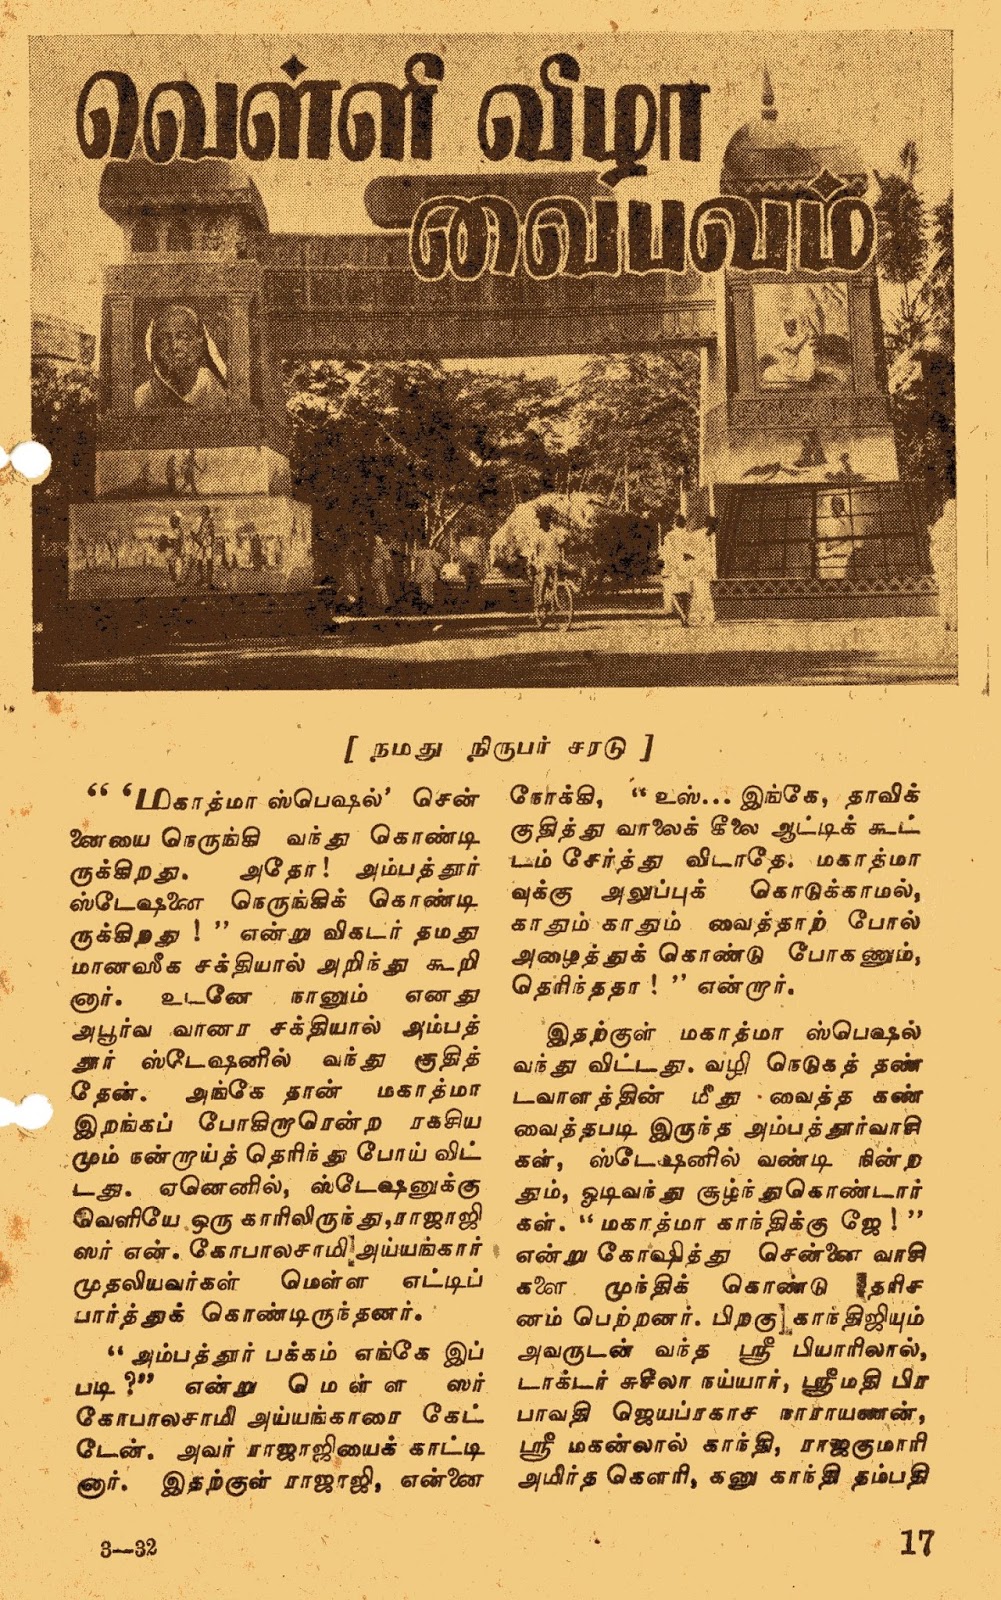 வெள்ளி விழா
வைபவம்
[ நமது நிருபர் சரடு ]
“ ‘மகாத்மா ஸ்பெஷல்’ சென்
னையை நெருங்கி வந்து கொண்டி
ருக்கிறது. அதோ! அம்பத்தூர்
ஸ்டேஷனை நெருங்கிக் கொண்டி
ருக்கிறது ! ” என்று விகடர் தமது
மானஸீக சக்தியால் அறிந்து கூறி
னார். உடனே நானும் எனது
அபூர்வ வானர சக்தியால் அம்பத்
தூர் ஸ்டேஷனில் வந்து குதித்
தேன். அங்கே தான் மகாத்மா
இறங்கப் போகிறாரென்ற ரகசிய
மும் நன்றாய்த் தெரிந்து போய் விட்
டது. ஏனெனில், ஸ்டேஷனுக்கு
வெளியே ஒரு காரிலிருந்து,ராஜாஜி
ஸர் என். கோபாலசாமி அய்யங்கார்
முதலியவர்கள் மெள்ள எட்டிப்
பார்த்துக் கொண்டிருந்தனர்.
“ அம்பத்தூர் பக்கம் எங்கே இப்
படி ?” என்று மெள்ள ஸர்
கோபாலசாமி அய்யங்காரை கேட்
டேன். அவர் ராஜாஜியைக் காட்டி
னார். இதற்குள் ராஜாஜி, என்னை
நோக்கி, “ உஸ்... இங்கே, தாவிக்
குதித்து வாலைக் கீலை ஆட்டிக் கூட்
டம் சேர்த்து விடாதே. மகாத்மா
வுக்கு அலுப்புக் கொடுக்காமல்,
காதும் காதும் வைத்தாற் போல்
அழைத்துக் கொண்டு போகணும்,
தெரிந்ததா ! ” என்றார்.
இதற்குள் மகாத்மா ஸ்பெஷல்
வந்து விட்டது. வழி நெடுகத் தண்
டவாளத்தின் மீது வைத்த கண்
வைத்தபடி இருந்த அம்பத்தூர்வாசி
கள், ஸ்டேஷனில் வண்டி நின்ற
தும், ஓடிவந்து சூழ்ந்துகொண்டார்
கள். “ மகாத்மா காந்திக்கு ஜே ! ”
என்று கோஷித்து சென்னை வாசி
களை முந்திக் கொண்டு தரிச
னம் பெற்றனர். பிறகு காந்திஜியும்
அவருடன் வந்த ஸ்ரீ பியாரிலால்,
டாக்டர் சுசீலா நய்யார், ஸ்ரீமதி பிர
பாவதி ஜெயப்ரகாச நாராயணன்,
ஸ்ரீ மகன்லால் காந்தி, ராஜகுமாரி
அமிர்த கௌரி, கனு காந்தி தம்பதி
3—32
17